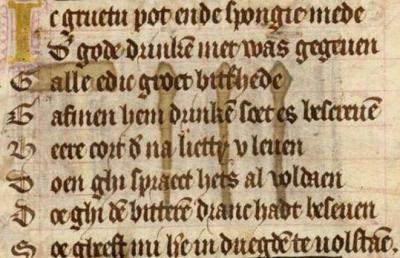 Ic gruetu pot ende spongie mede
D gode drunkē met was gegeuen
G alle edic groet bitthede
G afmen hem drunkē soet es bescreuē
H eere cort d na liettp v leuen
D oen ghi spraect hets al voldaen
D oe ghi dē bitterē dranc hadt beseuen
S oe gheeft mi he in duegdē te volstaē.